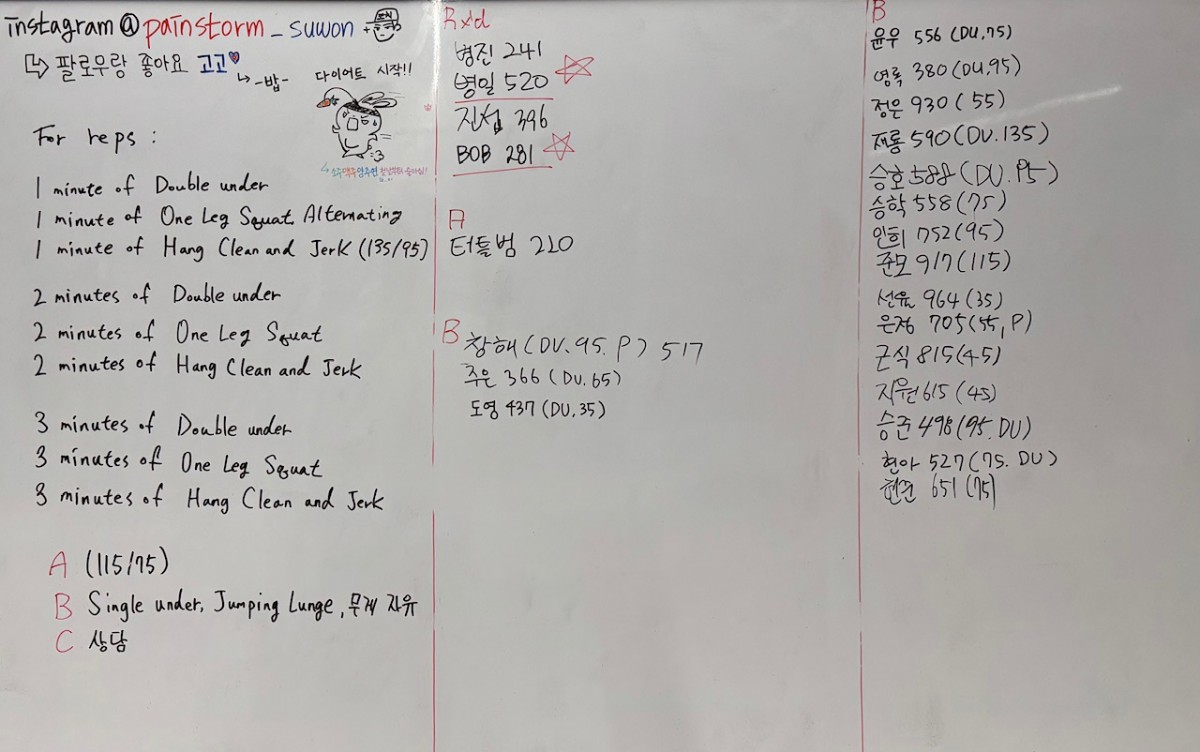 instagram@painstorm_suwon
팔로우랑 좋아요 고고
-밥-
다이어트 시작!!
For reps :
1 minute of Double under
1 minute of One Leg Squat Alternating
1 minute of Hang Clean and Jerk (135/95)
2 minutes of Double under
2 minutes of One Leg Squat
2 minutes of Hang Clean and Jerk
3 minutes of Double under
3 minutes of One Leg Squat
3 minutes of Hang Clean and Jerk
A (115/75)
B Single under, Jumping Lunge, 무게 자유
C 상담
Rxd
병진 241
병일 520
진섭 396
BOB 281
A
터틀범 220
B
창해 (DU. 95. P) 517
주은 366 (DU. 65)
도영 437 (DU, 35)
B
윤우 556 (DU, 75)
영록 380 (DU, 95)
정은 930 (55)
재룡 590 (DU. 135)
승호 588 (DU. 95)
승학 558 (75)
인희 752 (95)
준모 917 (115)
선유 964 (35)
은정 705 (55, P)
근식 815 (45)
지원 615 (45)
승준 498 (95. DU)
현아 527 (75. DU)
현준 651 (75)